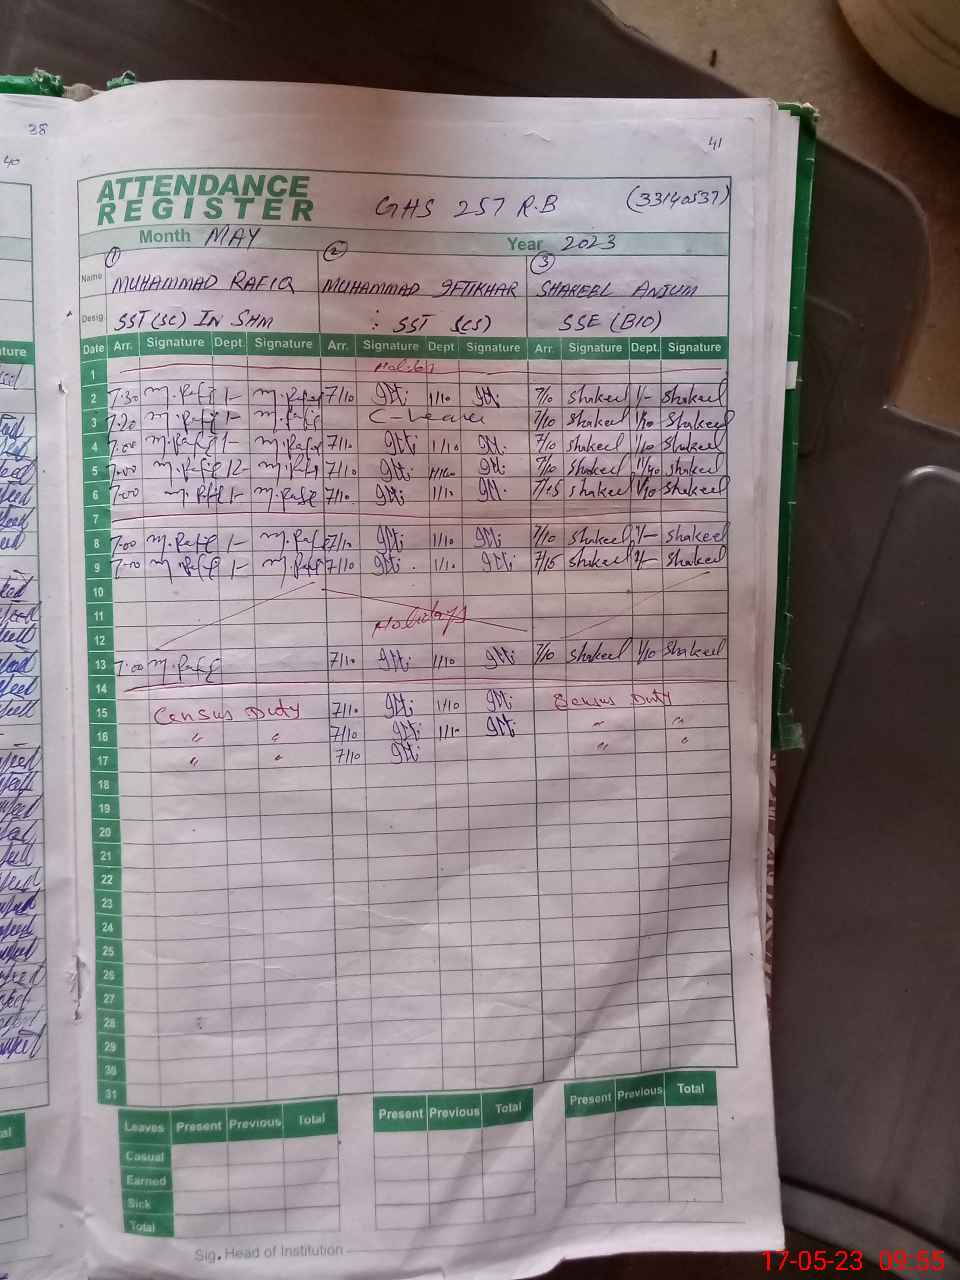 38
40
41
ATTENDANCE
REGISTER
GHS 257 R.B (33140537)
Month MAY Year 2023
① ② ③
Name MUHAMMAD RAFIQ MUHAMMAD IFTIKHAR SHAKEEL ANJUM
Desig. SST (SC) IN SHM : SST (CS) SSE (BIO)
Date Arr. Signature Dept. Signature Arr. Signature Dept Signature Arr. Signature Dept. Signature
1
2 7:30 M.Rafiq 1- M.Rafiq 7/10 Ifti 1/10 Ifti 7/10 Shakeel 1/- Shakeel
3 M.Rafiq 1- M.Rafiq C-Leave 7/10 Shakeel 1/10 Shakeel
4 7:00 M.Rafiq 1- M.Rafiq 7/10 Ifti 1/10 Ifti 7/10 Shakeel 1/10 Shakeel
5 7:00 M.Rafiq 12- M.Rafiq 7/10 Ifti Ifti 7/10 Shakeel Shakeel
6 7:00 M.Rafiq 1- M.Rafiq 7/10 Ifti 1/10 Ifti 7/15 Shakeel 1/10 Shakeel
7
8 7:00 M.Rafiq 1- M.Rafiq 7/10 Ifti 1/10 Ifti 7/10 Shakeel 1/- Shakeel
9 7:00 M.Rafiq 1- M.Rafiq 7/10 Ifti 1/10 Ifti 7/15 Shakeel 1/- Shakeel
10
11 Holidays
12
13 7:00 M.Rafiq 7/10 Ifti 1/10 Ifti 7/10 Shakeel 1/10 Shakeel
14
15 Census Duty 7/10 Ifti 1/10 Ifti Census Duty
16 " " 7/10 Ifti 1/10 Ifti " "
17 " " 7/10 Ifti " "
18
19
20
21
22
23
24
25
26
27
28
29
30
31
Leaves Present Previous Total Present Previous Total Present Previous Total
Casual
Earned
Sick
Total
Sig. Head of Institution
17-05-23 09:55